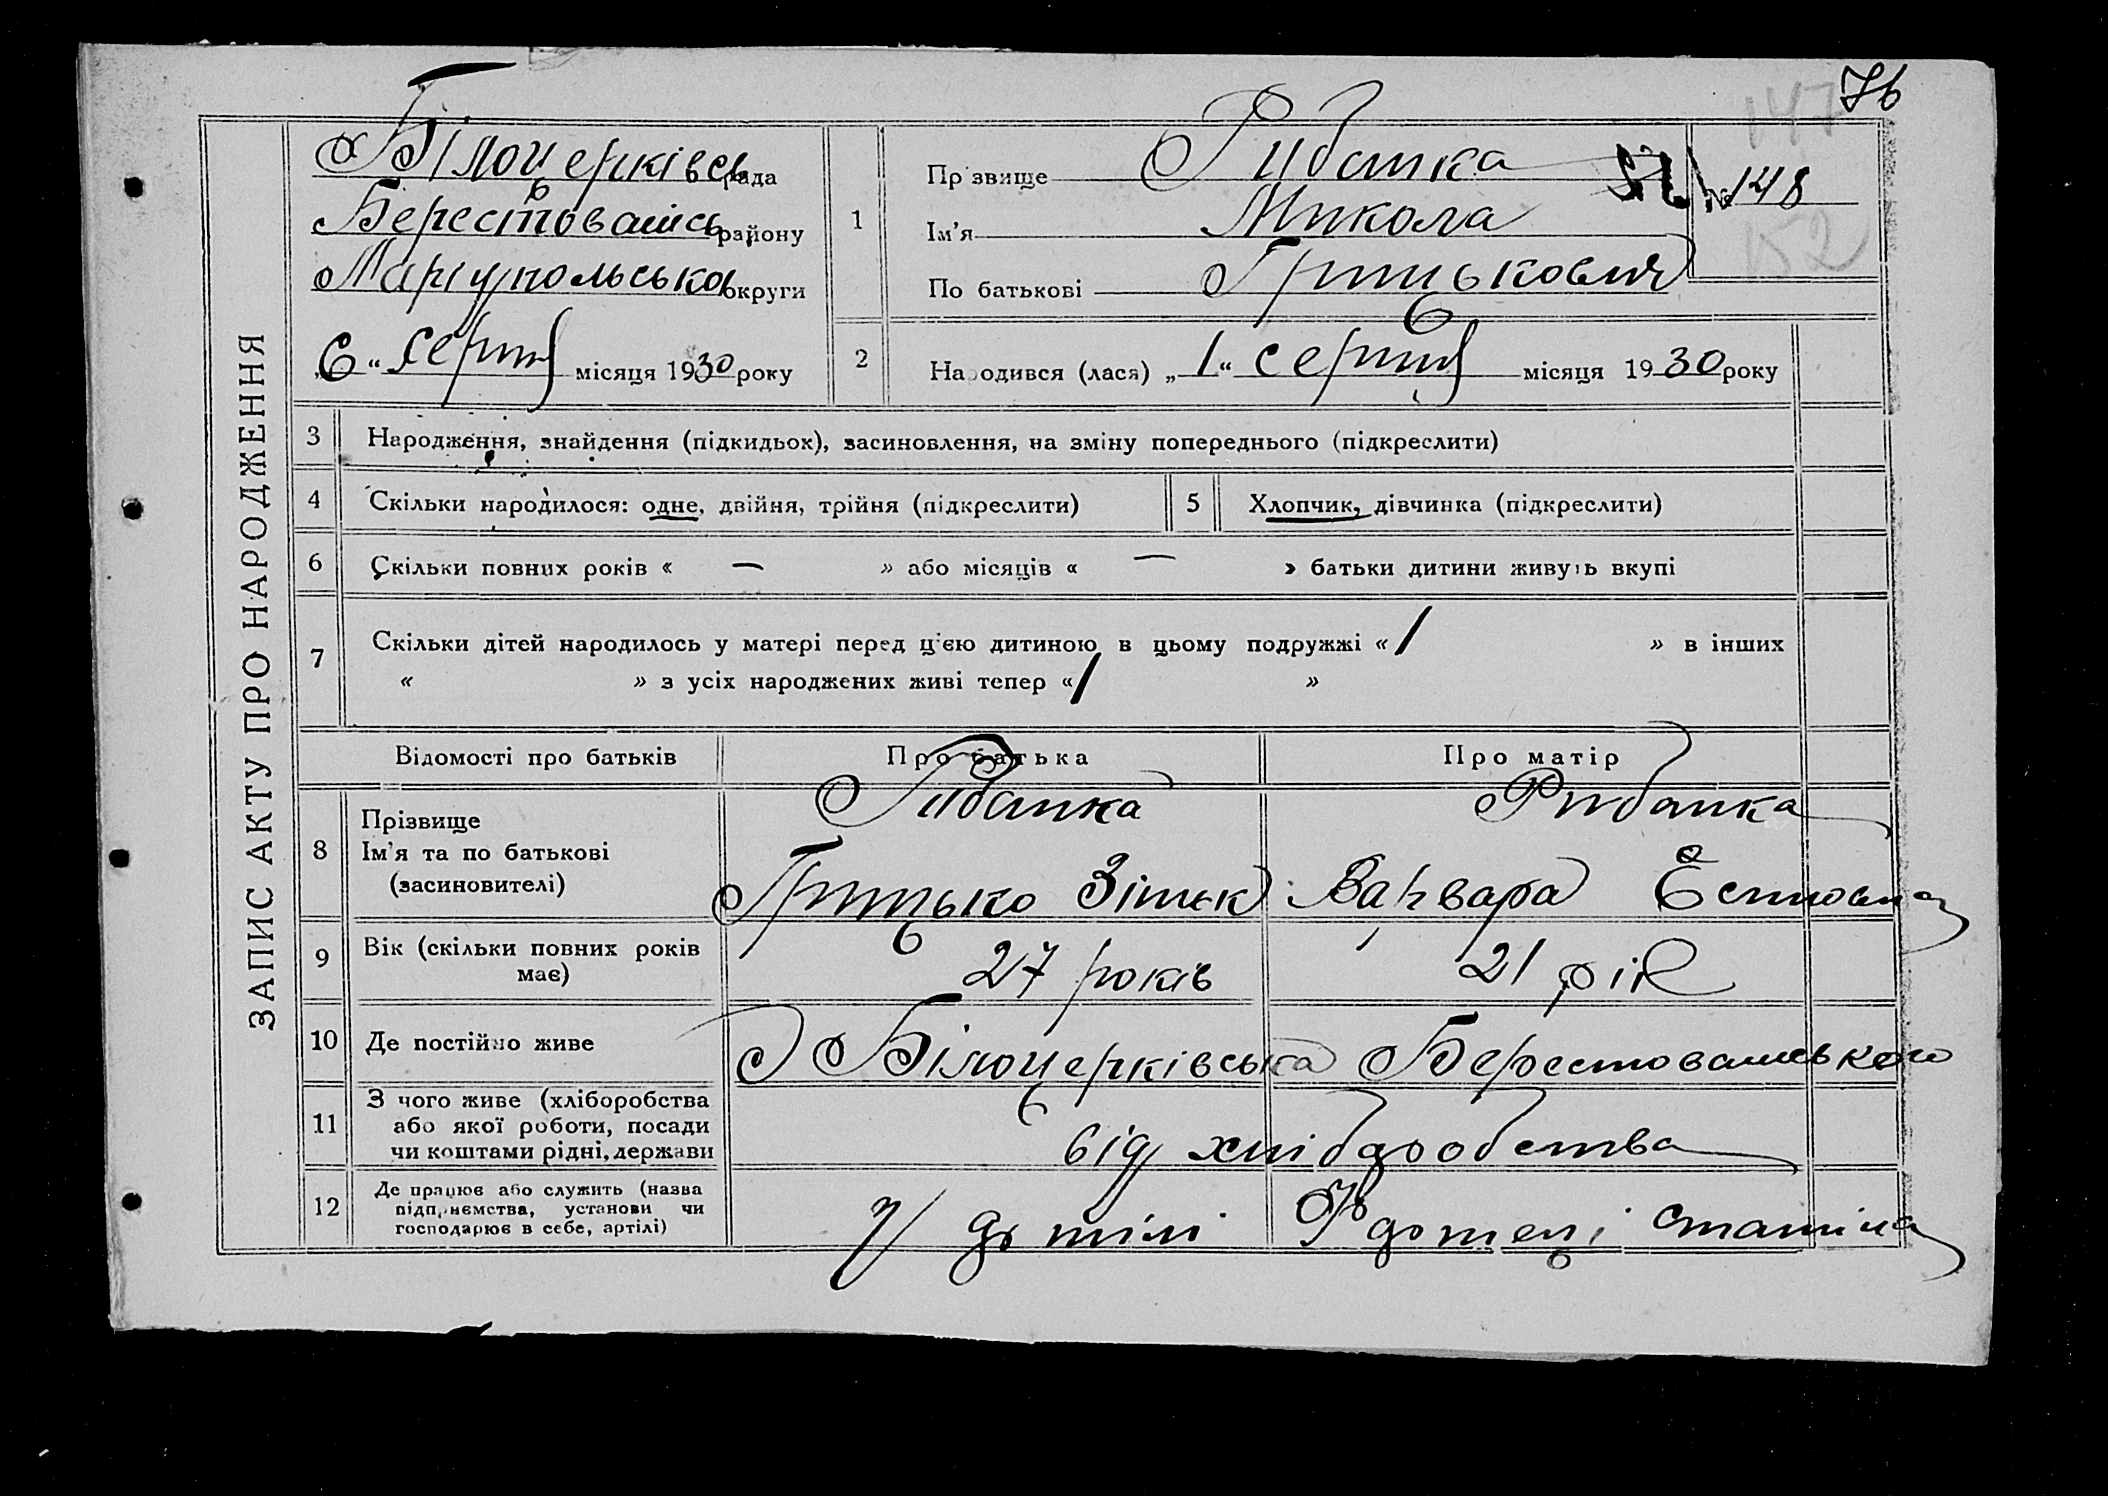 76
147
ЗАПИС АКТУ ПРО НАРОДЖЕННЯ
Білоцерківсь рада
Берестоваись району
Маріупольської округи
„6“ серпня місяця 1930 року
1
Прізвище Рибалка
№ 148
Ім'я Микола
152
По батькові Грицькович
2
Народився (лася) „1“ серпня місяця 1930 року
3 Народження, знайдення (підкидьох), засиновлення, на зміну попереднього (підкреслити)
4 Скільки народилося: одне, двійня, трійня (підкреслити) 5 Хлопчик, дівчинка (підкреслити)
6 Скільки повних років « — » або місяців « — » батьки дитини живуть вкупі
7 Скільки дітей народилось у матері перед цією дитиною в цьому подружжі « 1 » в інших
« » з усіх народжених живі тепер « 1 »
Відомості про батьків Про батька Про матір
8 Прізвище Рибалка Рибалка
Ім'я та по батькові
(засиновителі) Грицько Варвара
9 Вік (скільки повних років має) 27 років 21 рік
10 Де постійно живе Білоцерківська
11 З чого живе (хліборобства
або якої роботи, посади
чи коштами рідні, держави від хліборобства
12 Де працює або служить (назва
підприємства, установи чи
господарює в себе, артілі)